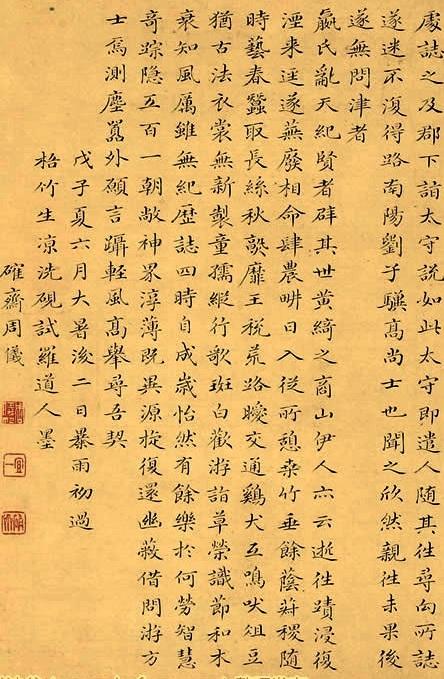 處誌之及郡下詣太守說如此太守即遣人隨其往尋向所誌
遂迷不復得路南陽劉子驥高尚士也聞之欣然親往未果後
遂無問津者
嬴氏亂天紀賢者辟其世黃綺之商山伊人亦云逝往蹟浸復
湮来逕遂蕪廢相命肆農畊日入從所憩桑竹垂餘蔭菽稷隨
時藝春蠶取長絲秋熟靡王稅荒路曖交通鷄犬互鳴吠俎豆
猶古法衣裳無新製童孺縱行歌斑白歡游詣草榮識節和木
衰知風厲雖無紀歷誌四時自成歲怡然有餘樂於何勞智慧
奇踪隐五百一朝敞神界淳薄既異源旋復還幽蔽借問游方
士焉測塵囂外願言躡輕風高舉尋吾契
戊子夏六月大暑後二日暴雨初過
梧竹生凉洗硯試羅道人墨
確齋周儀